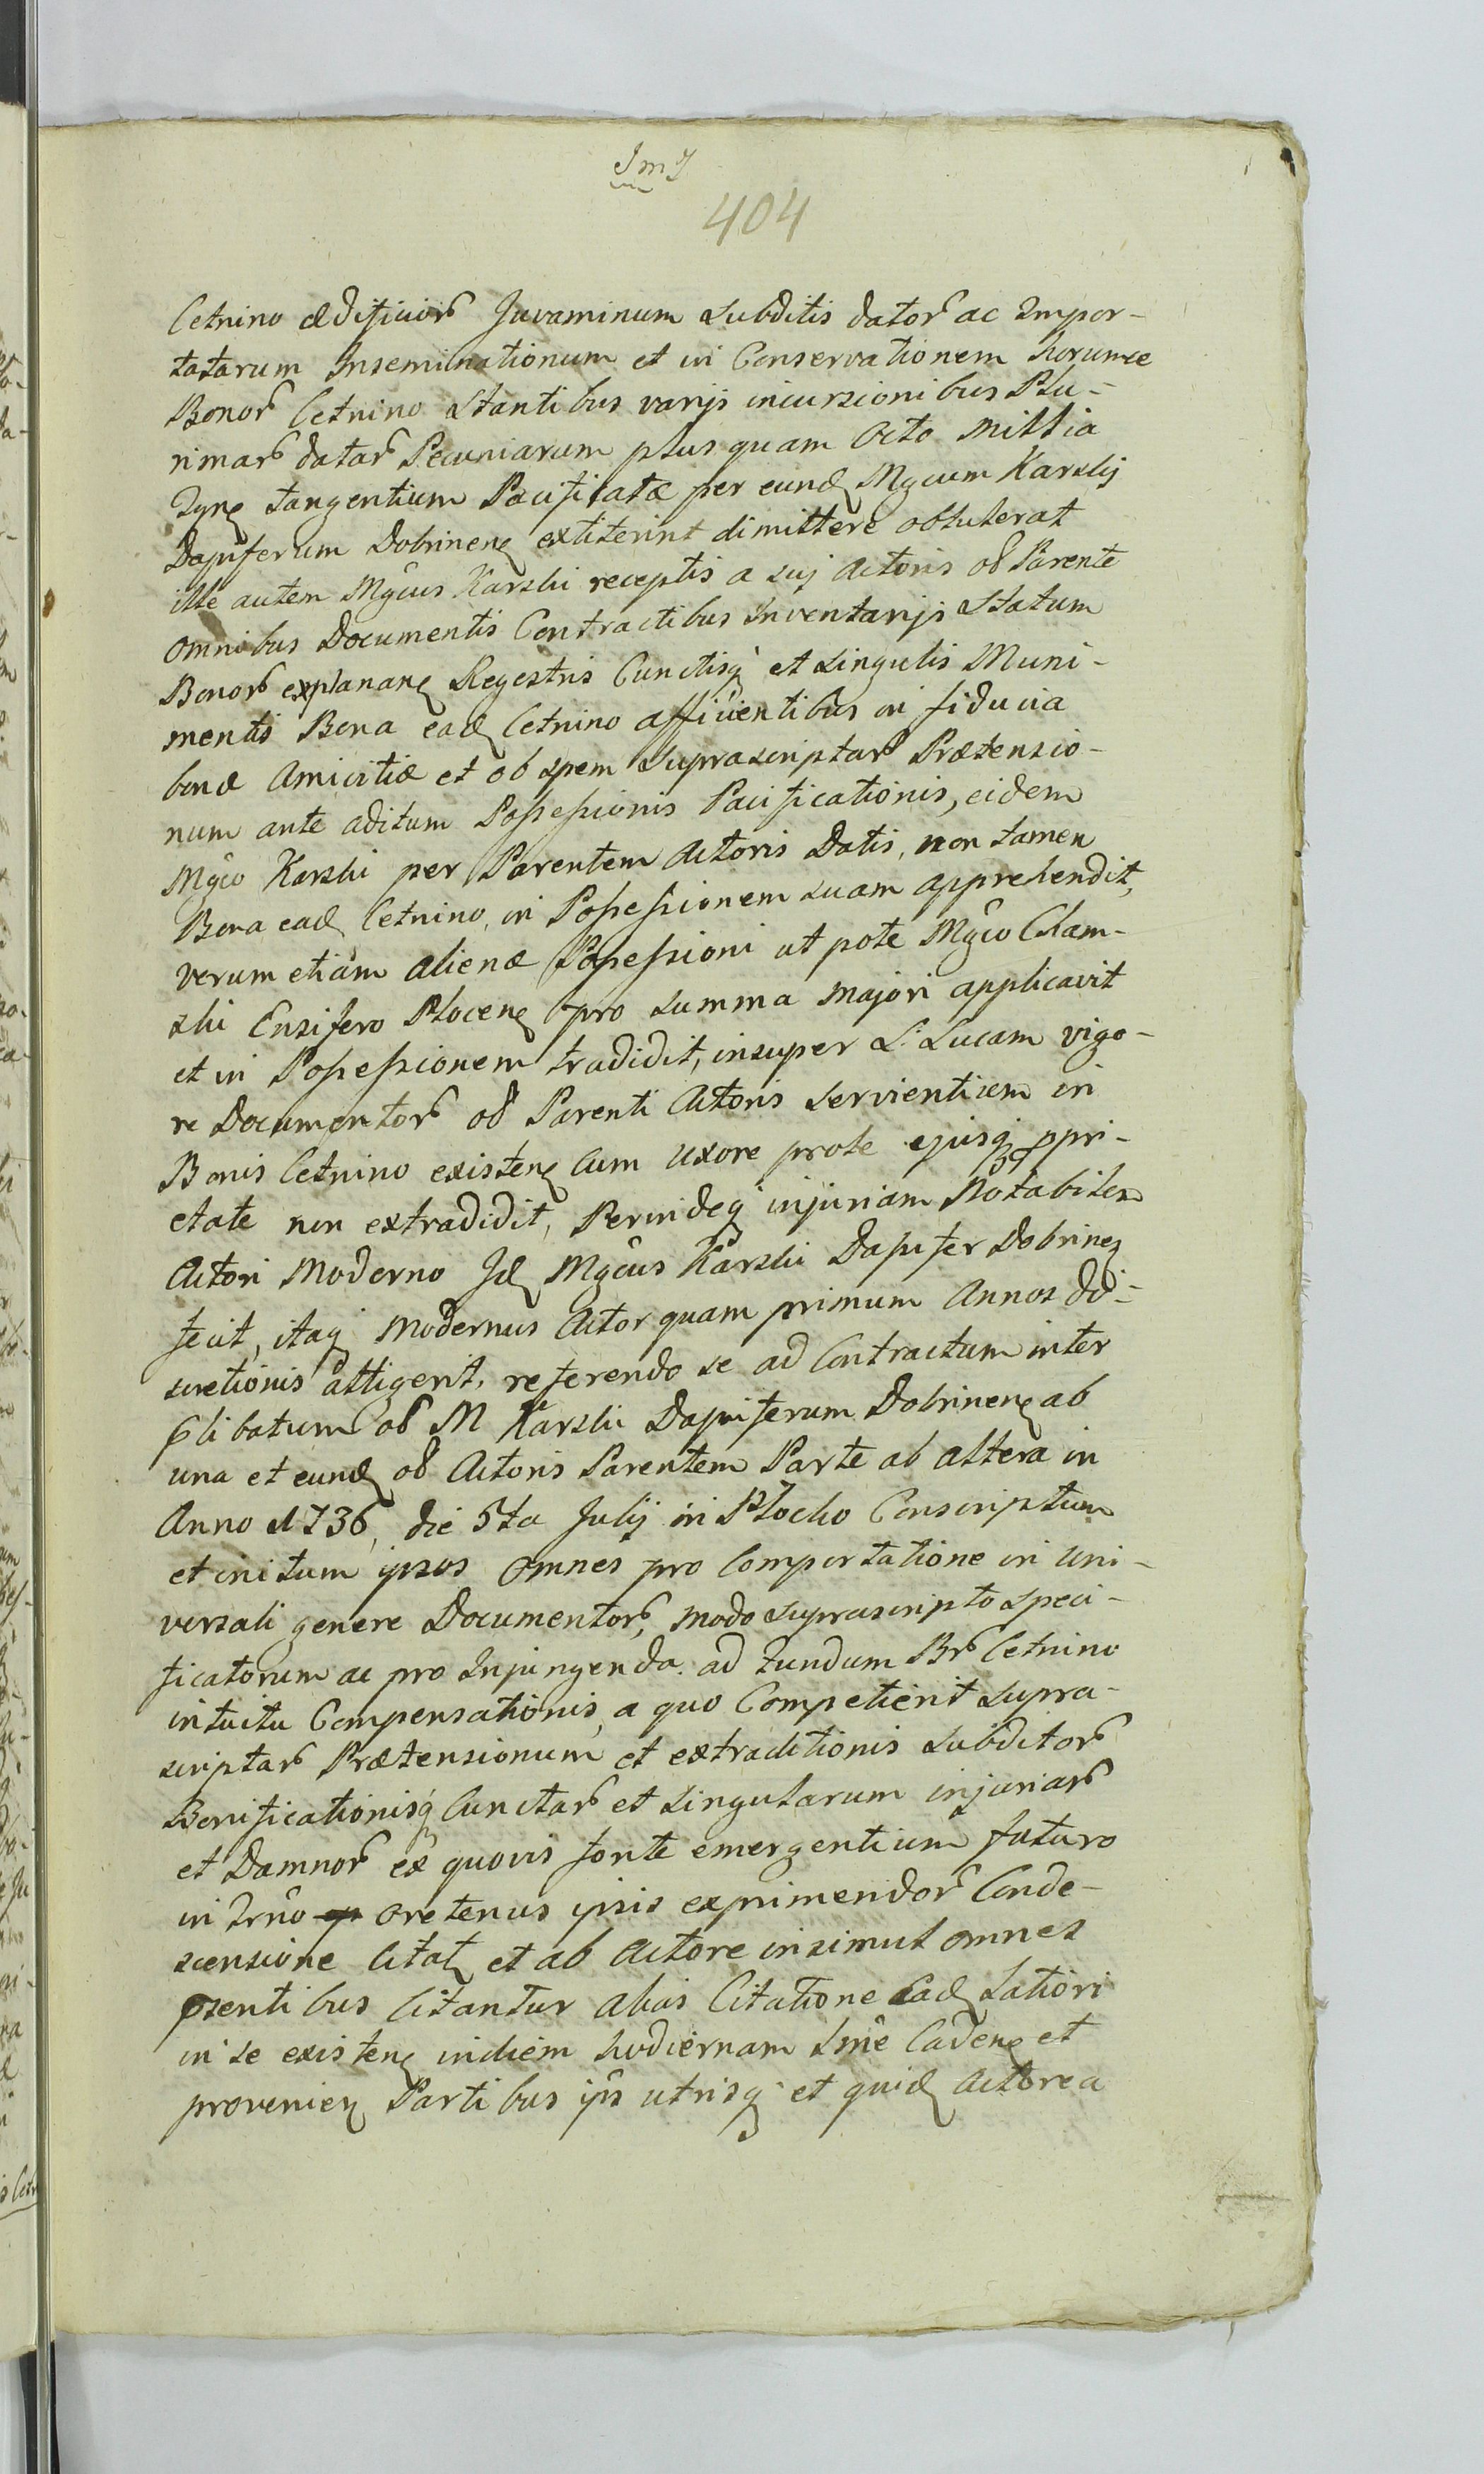 404
Cetnino ædificior Juvaminum Subditis dator ac Impor-
tatarum Inseminationum et in Conservationem horumce
Bonor Cetnino Stantibus varijs incursionibus Plu-
rimar datar Pecuniarum plus quam Octo Millia
tangentium Pacificatæ per eund Mgcum Karskij
Dapiferum Dobrinen extiterint dimittere obtulerat
ille autem Mgcus Karski receptis a suj Actoris od Parente
omnibus Documentis Contractibus Inventarijs Statum
Bonor explanan Regestris Cunctisq et Singulis Muni-
mentis Bona ead Cetnino afficientibus in fiducia
bonæ Amicitiæ et ob spem Suprascriptar Prætensio-
num ante aditum Possessionis Pacificationis, eidem
Mgco Karski per Parentem Actoris Datis, non tamen
Bona ead Cetnino, in Possessionem suam apprehendit,
verum etiam alienæ Possessioni ut pote Mgco Cham-
ski Ensifero Plocen pro Summa majori applicavit
et in Possessionem tradidit, insuper L: Lucam vigo-
re Documentor od Parenti Actoris Servientium in
Bonis Cetnino existen Cum Uxore prole ejusq ppri-
etate non extradidit, Perindeq injuriam Notabilem
Actori Moderno Jd Mgcus Karski Dapifer Dobrinen
fecit, itaq Modernus Actor quam primum Annos di-
scretionis attigerit, referendo se ad Contractum inter
plibatum od M Karski Dapiferum Dobrinen ab
una et eund od Actoris Parentem Parte ab altera in
Anno 1736, die 5ta Julij in Plocko Conscriptum
et initum ipsos omnes pro Comportatione in Uni-
versali genere Documentor, modo suprascripto speci-
ficatorum ac pro Injungenda ad fundum Br Cetnino
intuitu Compensationis, a quo Competierit Supra-
scriptar Prætensionum et extraditionis Subditor
Bonificationisq Cunctar et Singularum injuriar
et Damnor ex quovis fonte emergentium futuro
in Trno oretenus ipsis exprimendor Conde-
scensione Citat et ab Actore insimul omnes
psentibus Citantur alias Citatione Ead Latiori
in se existen in diem hodiernam Sme Caden et
provenien Partibus ips utrisq et quid Actorea